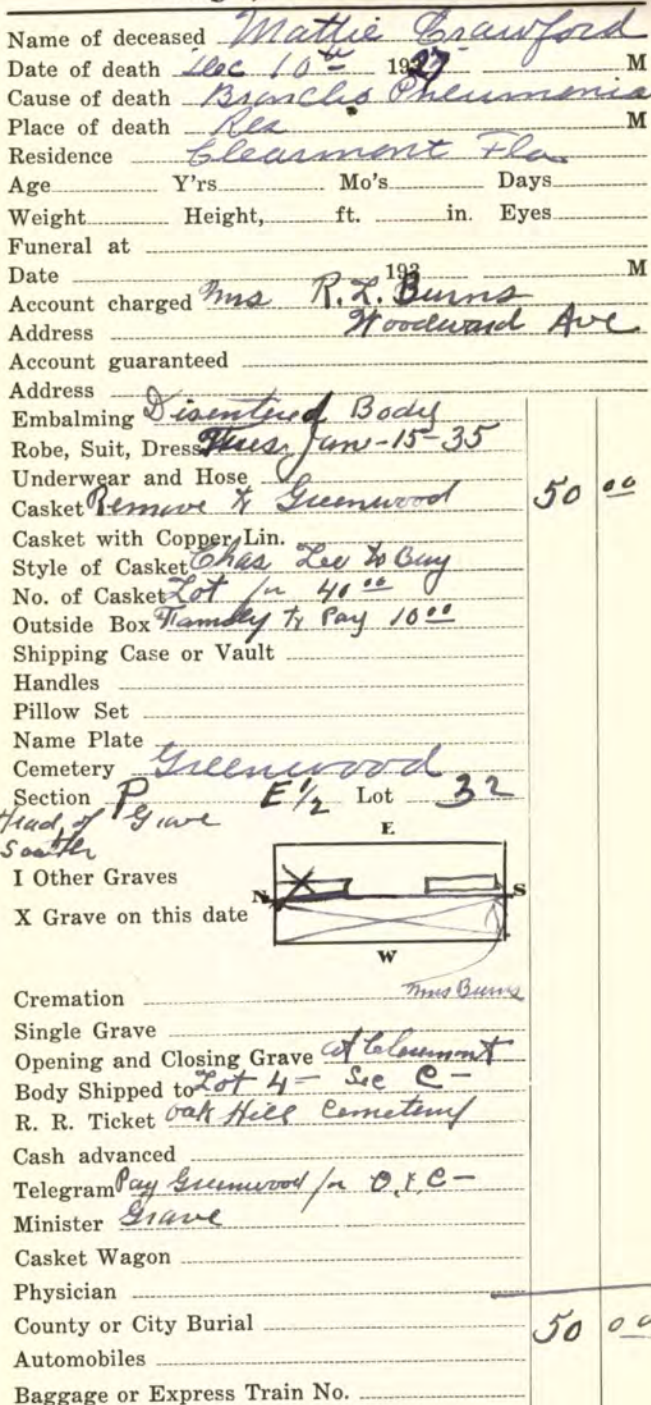 Name of deceased Mattie Crawford
Date of death Dec 10th 1927 M
Cause of death Broncho Pneumonia
Place of death Res M
Residence Clearmont Fla
Age Y'rs Mo's Days
Weight Height, ft. in. Eyes
Funeral at
Date 193 M
Account charged Mrs R. L. Burns
Address Woodward Ave
Account guaranteed
Address
Embalming Disentered Body
Robe, Suit, Dress Tues, Jan-15-35
Underwear and Hose
Casket Remove to Greenwood 50 00
Casket with Copper Lin.
Style of Casket Chas Lee to Buy
No. of Casket Lot for 40 00
Outside Box Family to Pay 10 00
Shipping Case or Vault
Handles
Pillow Set
Name Plate
Cemetery Greenwood
Section P E 1/2 Lot 32
Head of Grave
South
E
I Other Graves
N S
X Grave on this date
W
Mrs Burns
Cremation
Single Grave
Opening and Closing Grave at Clermont
Body Shipped to Lot 4 = Sec C -
R. R. Ticket Oak Hill Cemetery
Cash advanced
Telegram Pay Greenwood for O. & C -
Minister Grave
Casket Wagon
Physician
County or City Burial 50 00
Automobiles
Baggage or Express Train No.